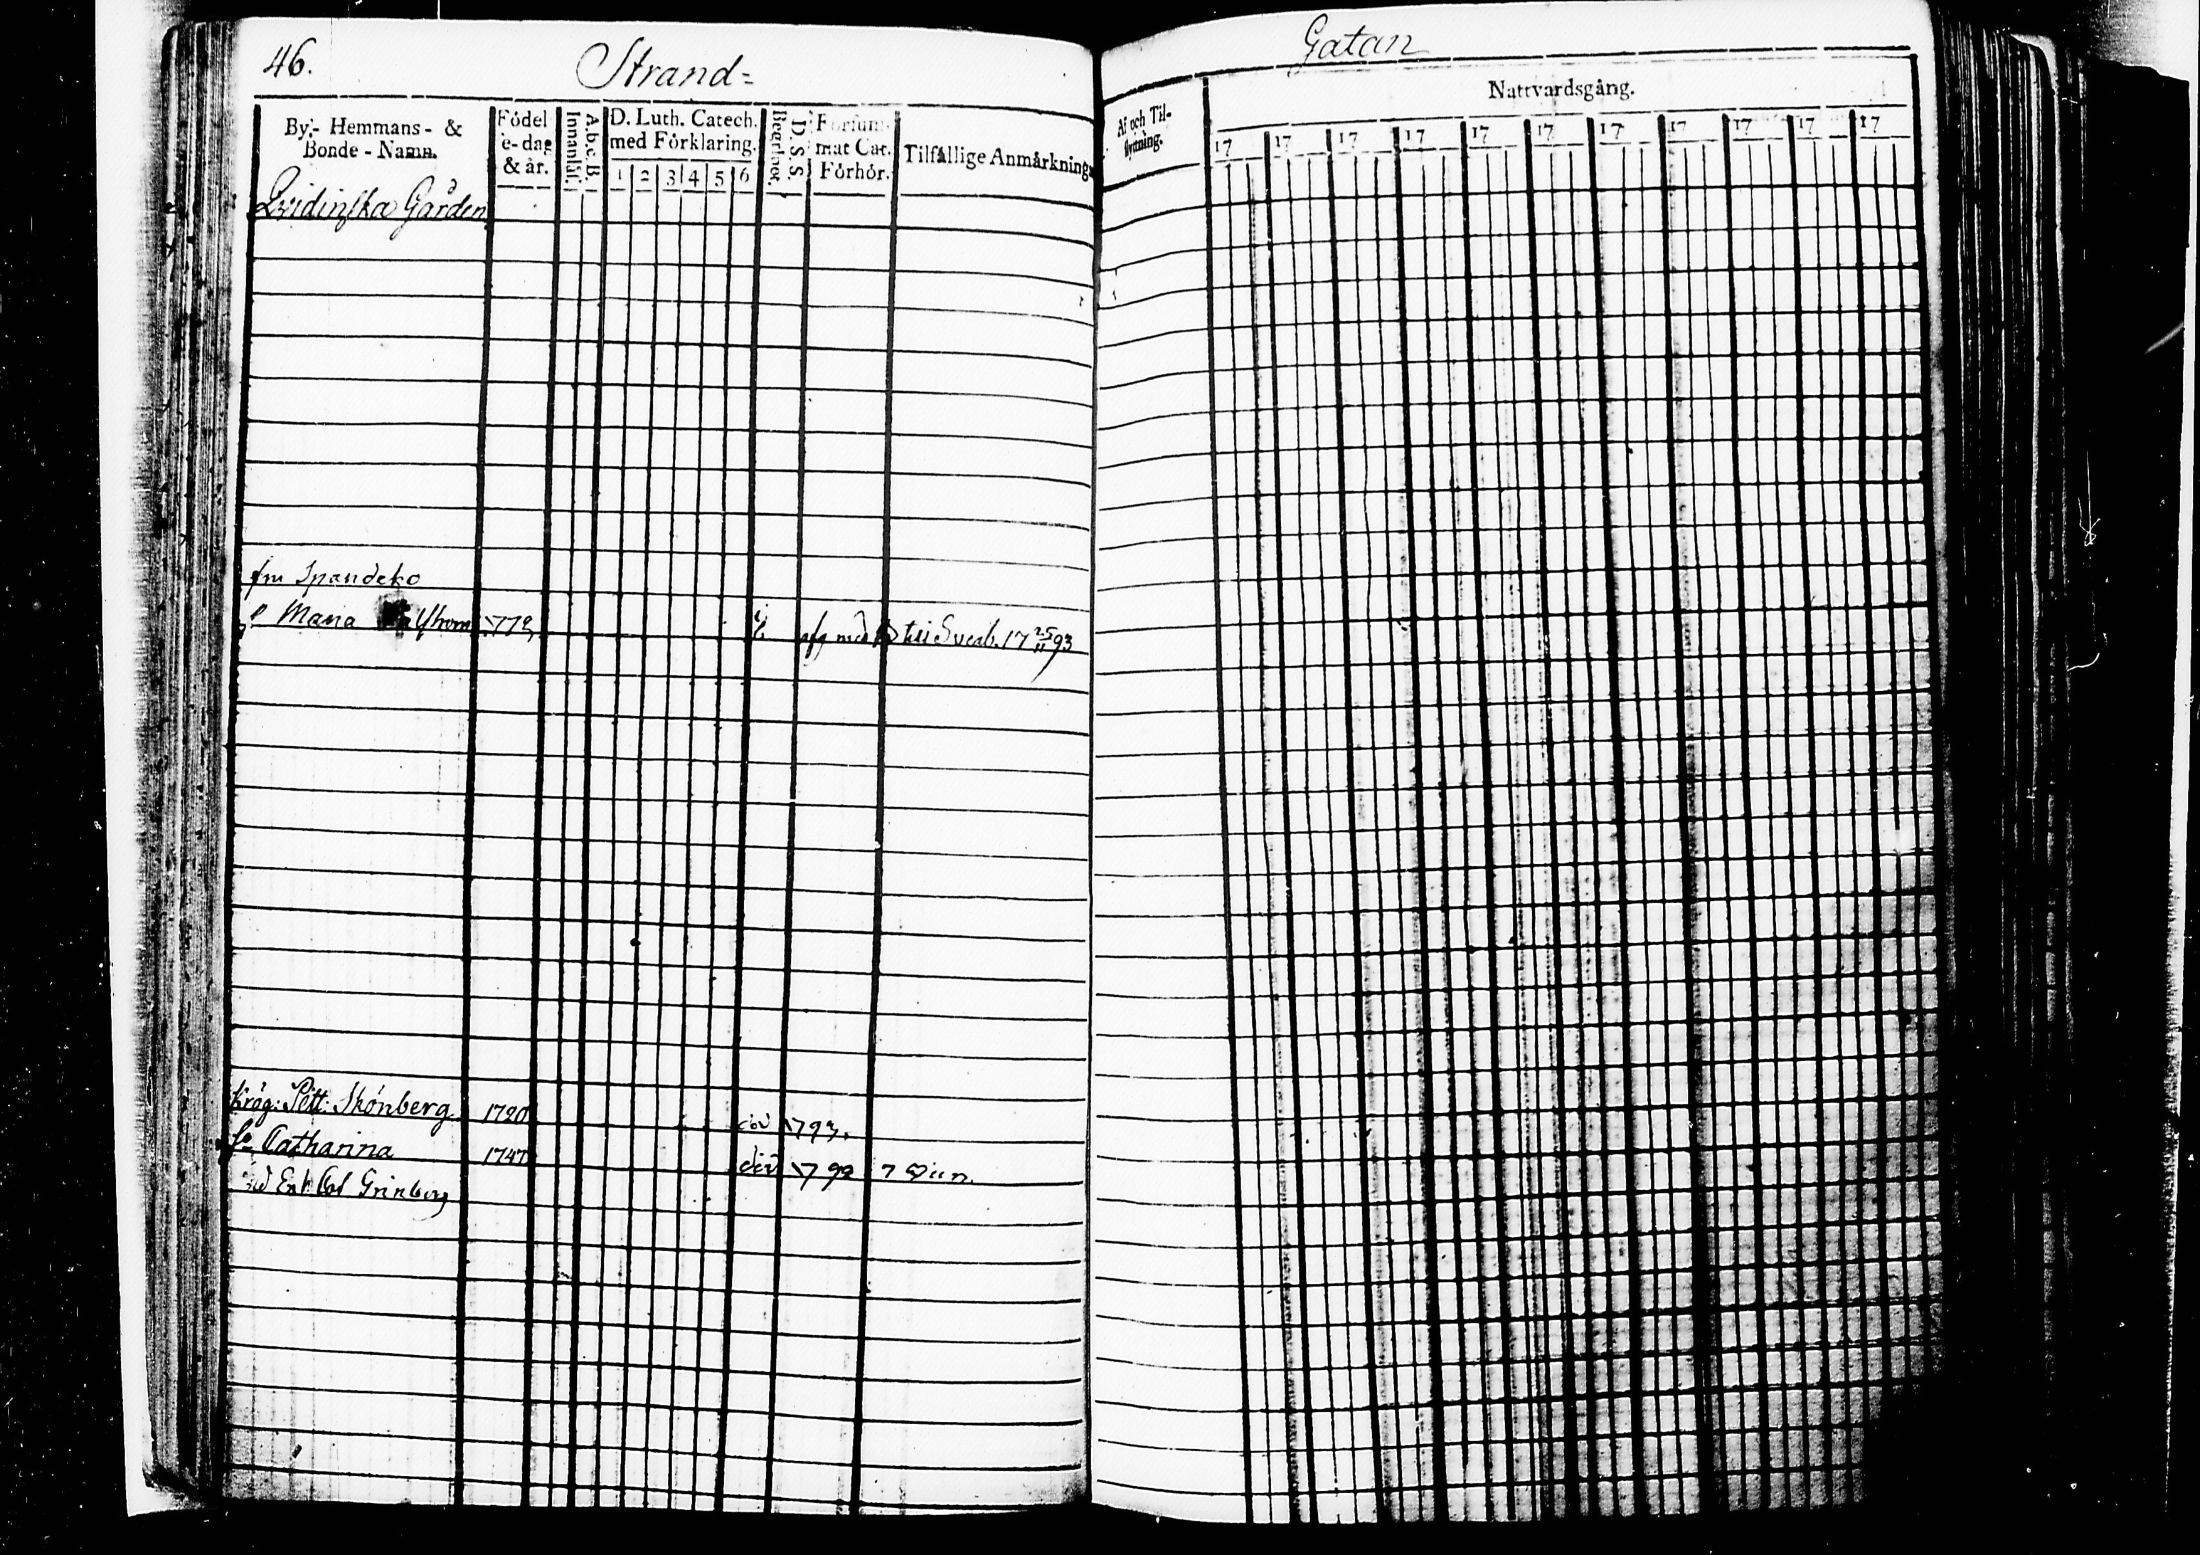 46.
Strand=
By- Hemmans- &
Bonde-Namn.
Födel
e-dag
& år.
A.b.c.B.
Innanläs.
D. Luth. Catech.
med Förklaring.
1 2 3 4 5 6
D. S. S.
Begrepet.
Försum-
mat Cat.
Förhör.
Tilfällige Anmärkning
Qvidinska Gården
Spandeko
Maria 177 till Sveab. 17 25/11 93
Krög: Pett: Skönberg 1720 1793.
Catharina 1747 1792
Grinberg
Gatan
Af och Til-
flyttning.
Nattvardsgång.
17 17 17 17 17 17 17 17 17 17 17